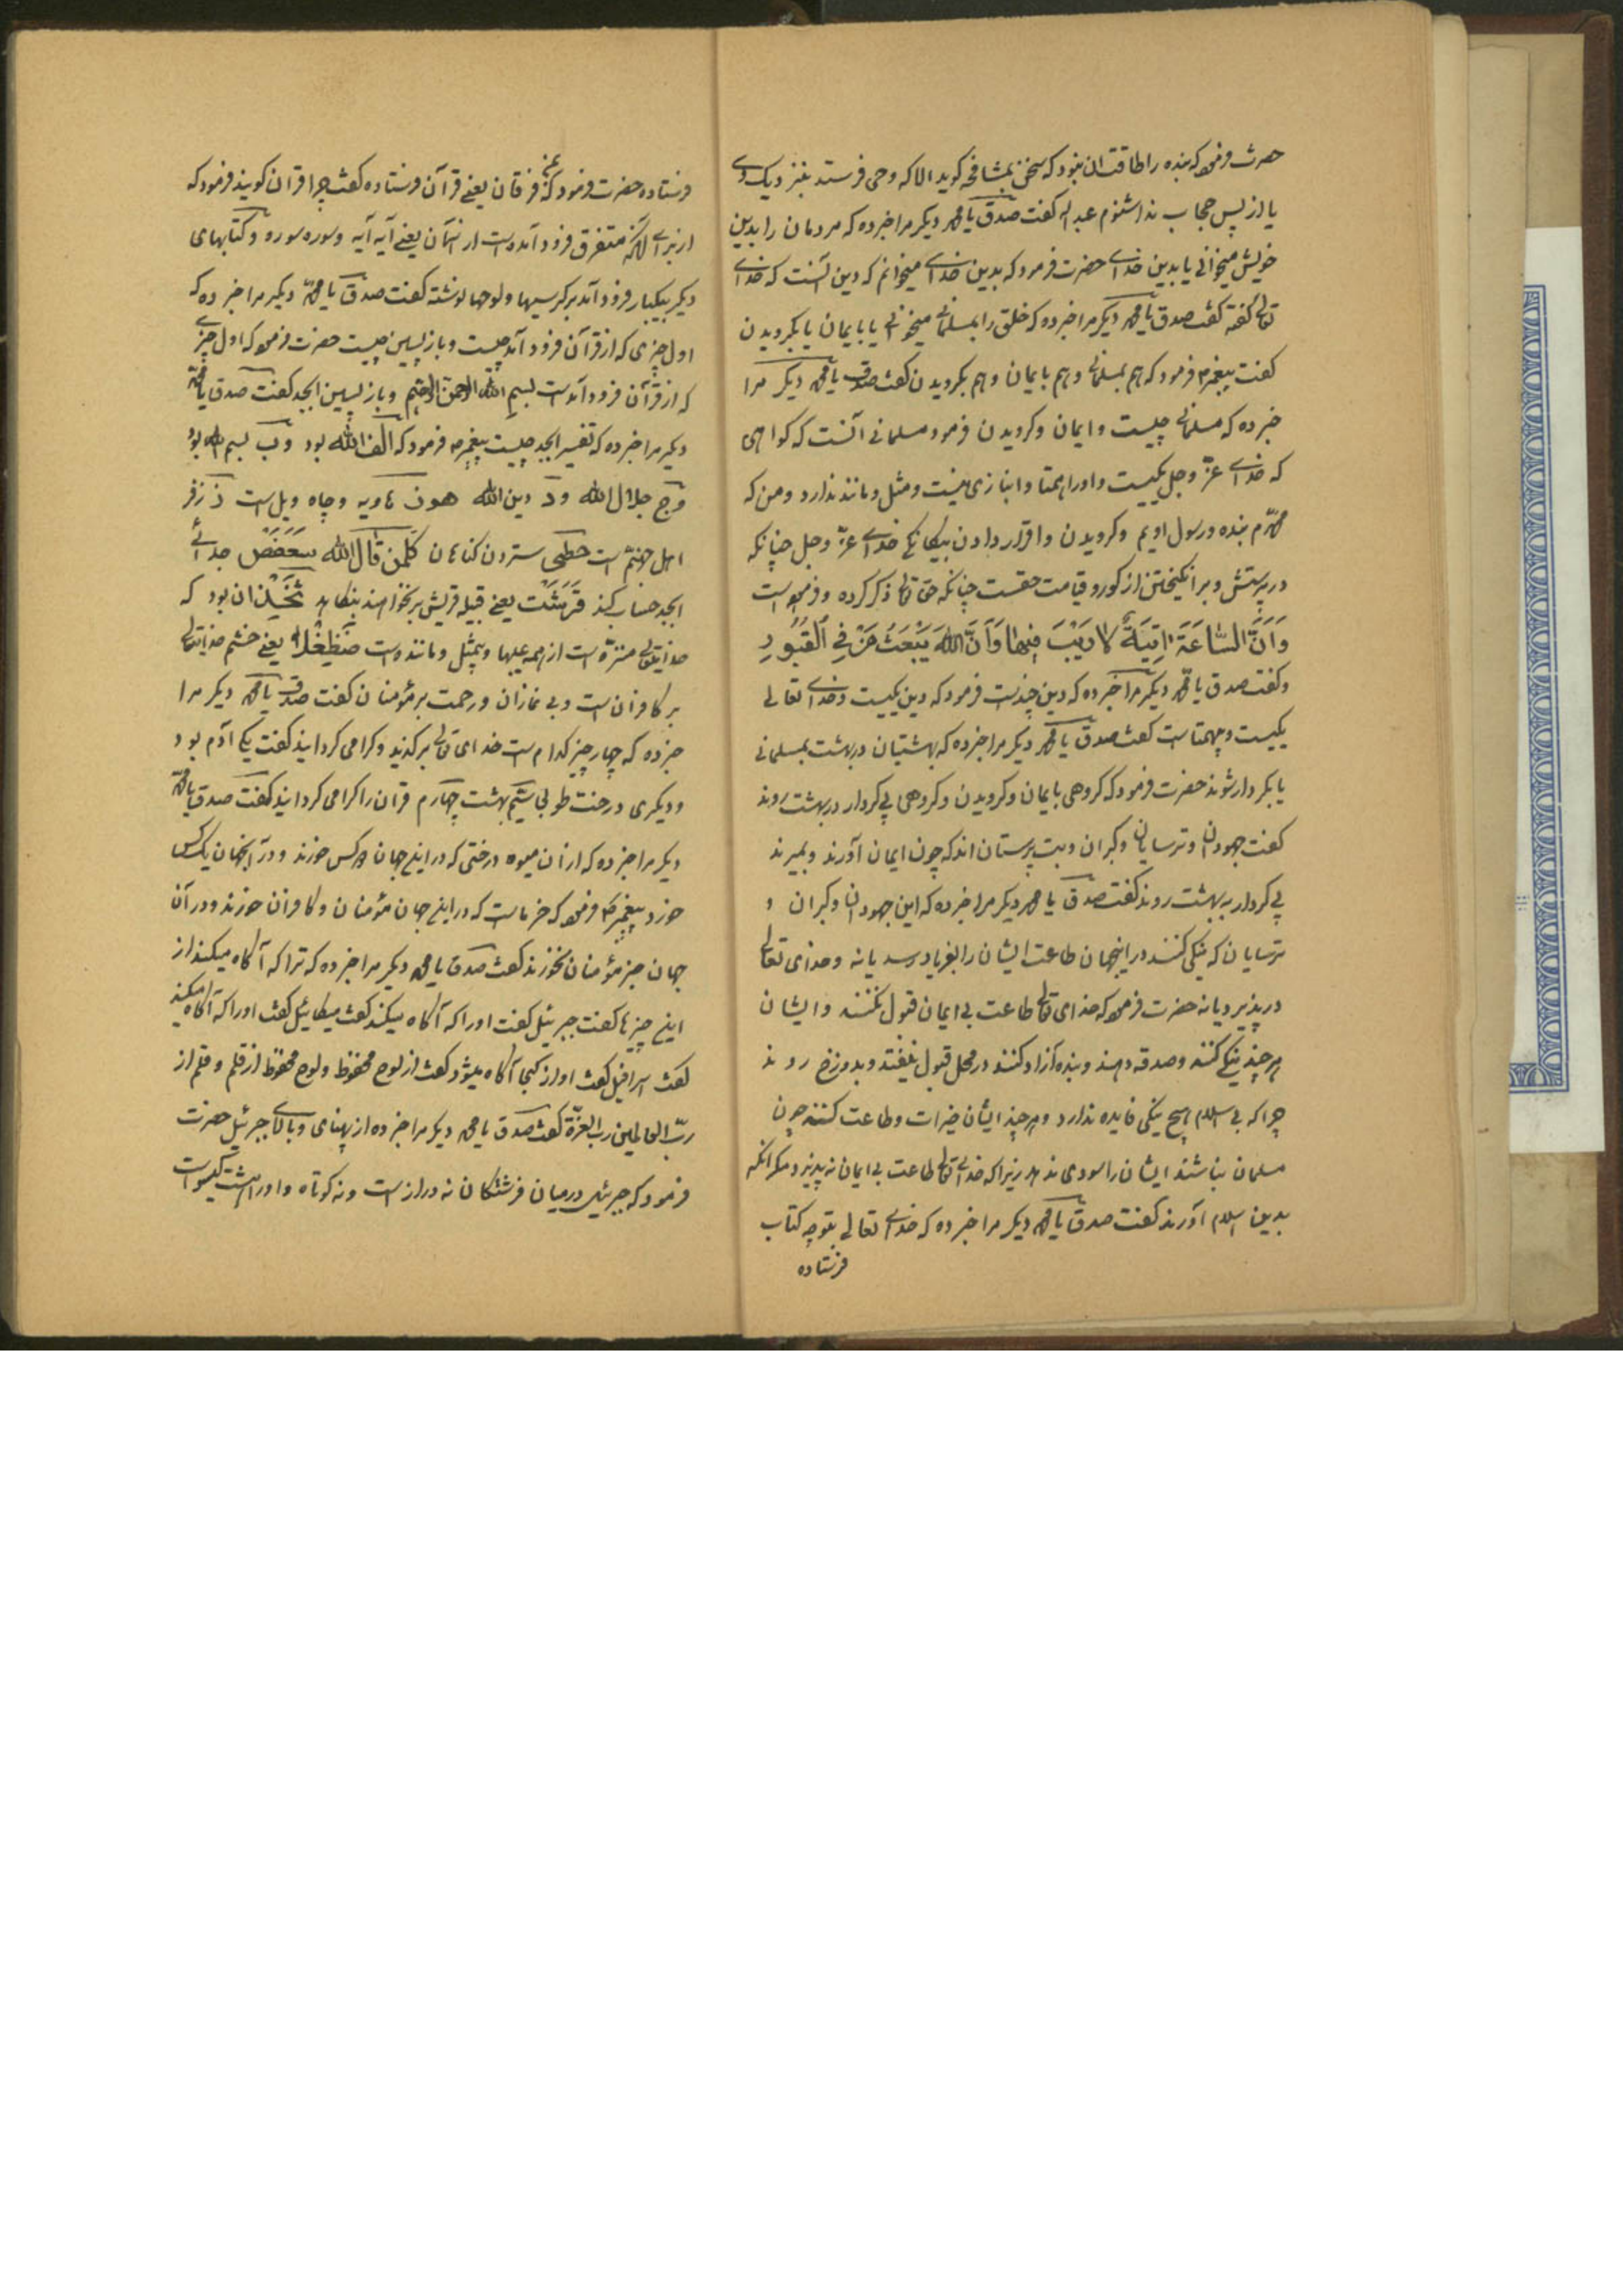 حضرت فرمود که بنده را طاقت ان نبود که سخن بمشافحه کوید الا که وحی فرستد بنزدیک وی
یا از پس حجاب ندا شنوم عبد اله کفت صدق یا محمد دیکر مرا خبر ده که مردمان را بدین
خویش میخوانی یا بدین خدای حضرت فرمود که بدین خدای میخوانم که دین آنست که خدای
تعالی کفته کفت صدق یا محمد دیکر مرا خبر ده که خلق را بمسلمانی میخوانی یا بایمان یا بکرویدن
کفت پیغمبر فرمود که هم بمسلمانی و هم بایمان و هم بکرویدن کفت صدق یا محمد دیکر مرا
خبر ده که مسلمانی چیست و ایمان و کرویدن فرمود مسلمانی آنست که کواهی
که خدای عزّ وجل یکیست و او را همتا و انبازی نیست و مثل و مانند ندارد و من که
محمّدم بنده و رسول اویم و کرویدن و اقرار دادن بیکانکی خدای عزّ وجل چنانکه
در پرستش و بر انکیختن از کور و قیامت حقست چنانکه حق تعالی ذکر کرده و فرموده است
وَاَنَّ السَّاعَةَ اٰتِيَةٌ لا رَيْبَ فِيهٰا وَاَنَّ اللهَ يَبْعَثُ مَنْ فِي الْقُبُورِ
و کفت صدق یا محمد دیکر مرا خبر ده که دین چندست فرمود که دین یکیست و خدای تعالی
یکیست و بیهمتاست کفت صدق یا محمد دیکر مرا خبر ده که بهشتیان در بهشت بمسلمانی
یا بکردار شوند حضرت فرمود که کروهی بایمان و کرویدن و کروهی بی کردار در بهشت روند
کفت جهودان و ترسایان و کبران و بت پرستان اند که چون ایمان آورند و بمیرند
بی کردار به بهشت روند کفت صدق یا محمد دیکر مرا خبر ده که این جهودان و کبران و
ترسایان که نیکی کنند در اینجهان طاعت ایشان را بفریاد رسد یا نه و خدای تعالی
در پذیرد یا نه حضرت فرمود که خدای تعالی طاعت بی ایمان قبول نکند و ایشان
هر چند نیکی کنند و صدقه دهند و بنده آزاد کنند در محل قبول نیفتد و بدوزخ روند
چرا که بی اسلام هیچ نیکی فایده ندارد و هر چند ایشان خیرات و طاعت کنند چون
مسلمان نباشند ایشان را سودی ندهد زیرا که خدای تعالی طاعت بی ایمان نپذیرد مکر انکه
بدین اسلام آورند کفت صدق یا محمد دیکر مرا خبر ده که خدای تعالی بتو چه کتاب
فرستاده
فرستاده حضرت فرمود که فرقان یعنی قرآن فرستاده کفت چرا قران کویند فرمود که
از برای آنکه متفرق فرود آمده است از آسمان یعنی آیه آیه و سوره سوره و کتابهای
دیکر بیکبار فرود آمد بر کرسیها و لوحها نوشته کفت صدق یا محمّد دیکر مرا خبر ده که
اول چیزی که از قرآن فرود آمد چیست و باز پسین چیست حضرت فرمود که اول چیزی
که از قرآن فرود آمد است بسم الله الرحمن الرحیم و باز پسین ابجد کفت صدق یا محمّد
دیکر مرا خبر ده که تفسیر ابجد چیست پیغمبر فرمود که الف الله بود و ب بسم الله بود
و ج جلال الله و د دین الله هوز هاویه و چاه ویل است ز زفر
اهل جهنّم است حطی ستردن کناهان کلمن قال الله سعفص جدائی
ابجد حساب کند قرشت یعنی قبیله قریش بر نخواهند ثخذ ان بود که
خدایتعالی منزّه است از همه عیبها و بیمثل و مانند است ضظغلا یعنی خشم خدایتعالی
بر کافران است و بی نمازان و رحمت بر مؤمنان کفت صدق یا محمد دیکر مرا
خبر ده که چهار چیز کدام است خدای تعالی برکزید و کرامی کردانید کفت یکی آدم بود
و دیکری درخت طوبی سیّم بهشت چهارم قران را کرامی کردانید کفت صدق یا محمّد
دیکر مرا خبر ده که از ان میوه درختی که در این جهان دو کس خورند و در آن جهان یک کس
خورد پیغمبر فرمود که خرماست که در این جهان مؤمنان و کافران خورند و در آن
جهان جز مؤمنان نخورند کفت صدق یا محمد دیکر مرا خبر ده که ترا که آکاه میکند از
این چیزها کفت جبرئیل کفت او را که آکاه میکند کفت میکائیل کفت او را که آکاه میکند
کفت اسرافیل کفت او از کجا آکاه میشود کفت از لوح محفوظ و لوح محفوظ از قلم و قلم از
ربّ العالمین رب العزّة کفت صدق یا محمد دیکر مرا خبر ده از پهنای و بالای جبرئیل حضرت
فرمود که جبرئیل در میان فرشتکان نه دراز است و نه کوتاه و او را هشت کیسو است